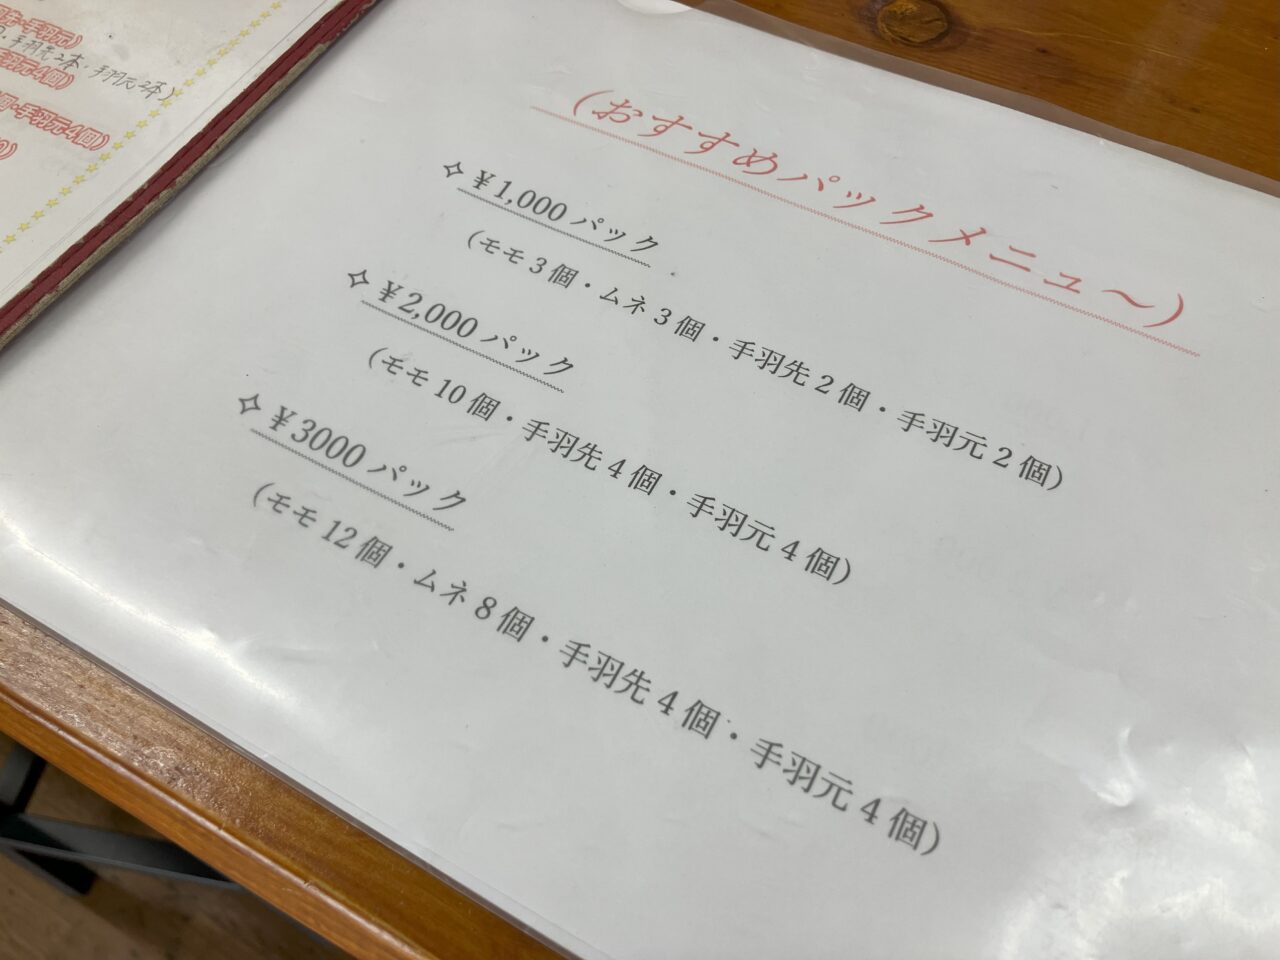 ・手羽先2本・手羽元2本)
・手羽元4個)
(おすすめパックメニュ～)
✧ ¥1,000 パック
(モモ 3 個・ムネ 3 個・手羽先 2 個・手羽元 2 個)
✧ ¥2,000 パック
(モモ 10 個・手羽先 4 個・手羽元 4 個)
✧ ¥3000 パック
(モモ 12 個・ムネ 8 個・手羽先 4 個・手羽元 4 個)